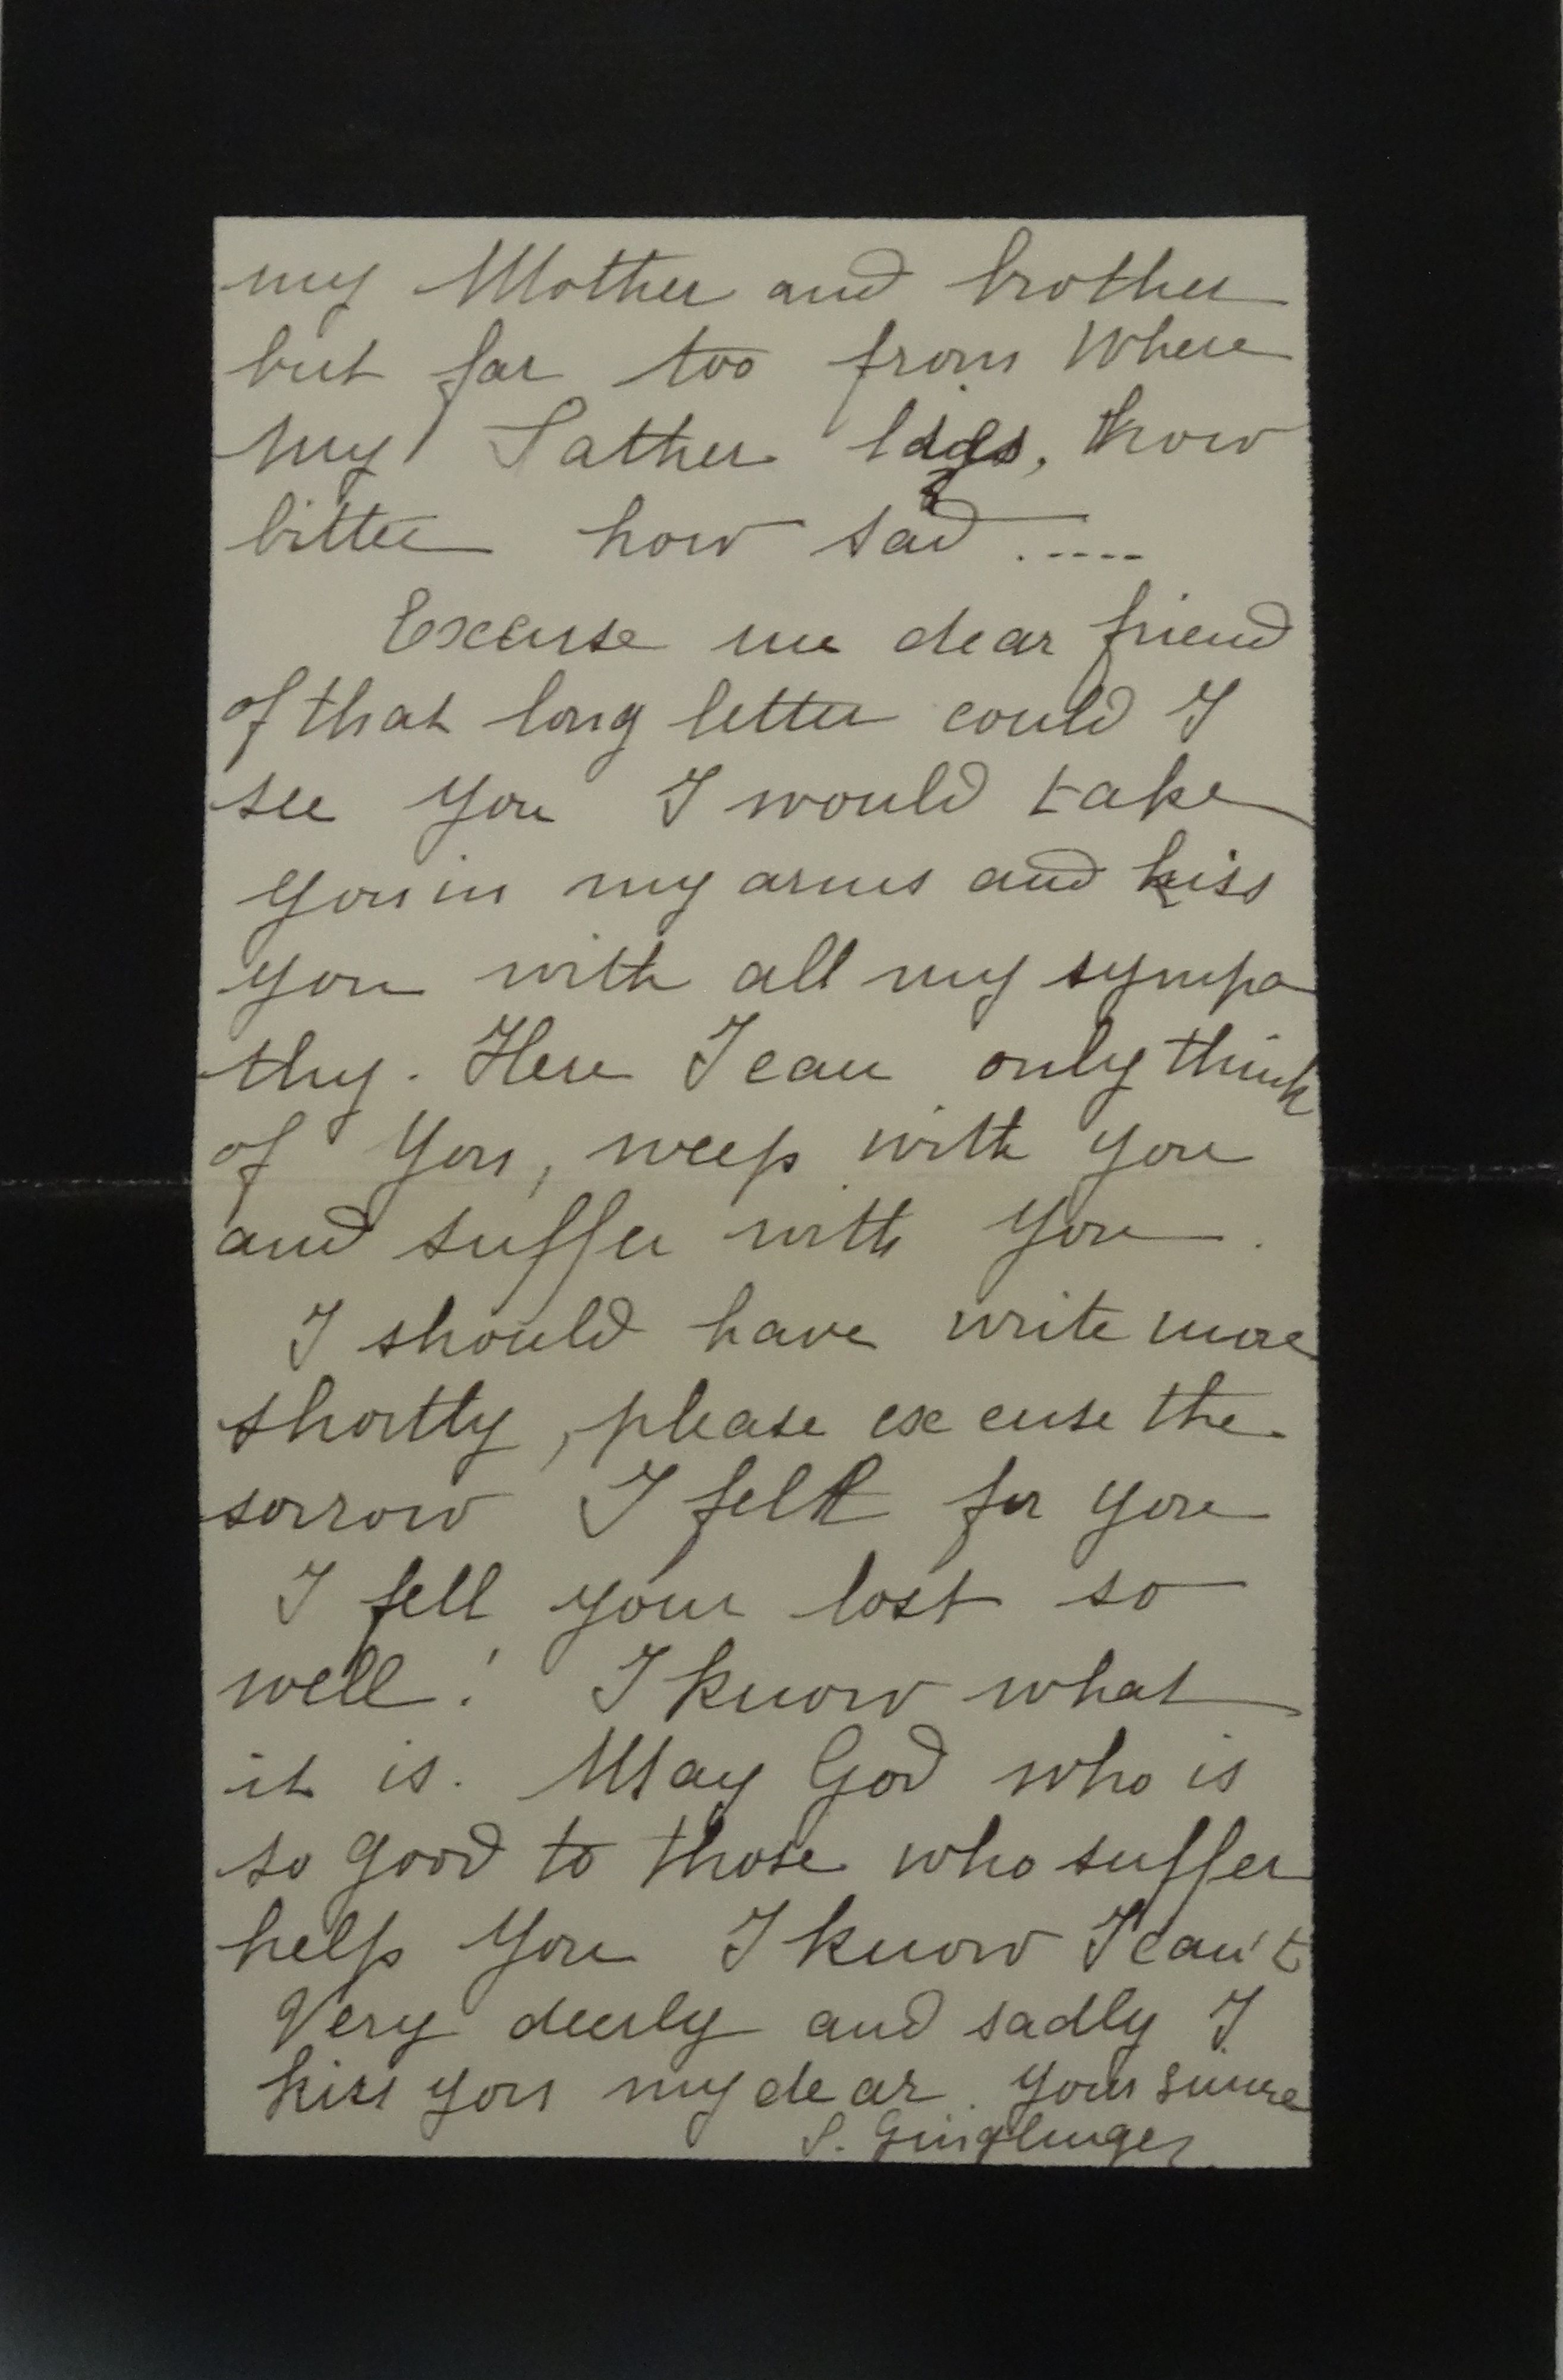 my Mother and brother
but far too from Where
my Father lays, how
bitter how sad .....
Excuse me dear friend
of that long letter could I
see you I would take
you in my arms and kiss
you with all my sympa
thy. Here I can only think
of you, weep with you
and suffer with you.
I should have write more
shortly, please excuse the
sorrow I felt for you
I fell your lost so
well! I know what
it is. May God who is
so good to those who suffer
help you I know I can't
Very deerly and sadly I
kiss you my dear. your sincere
S.